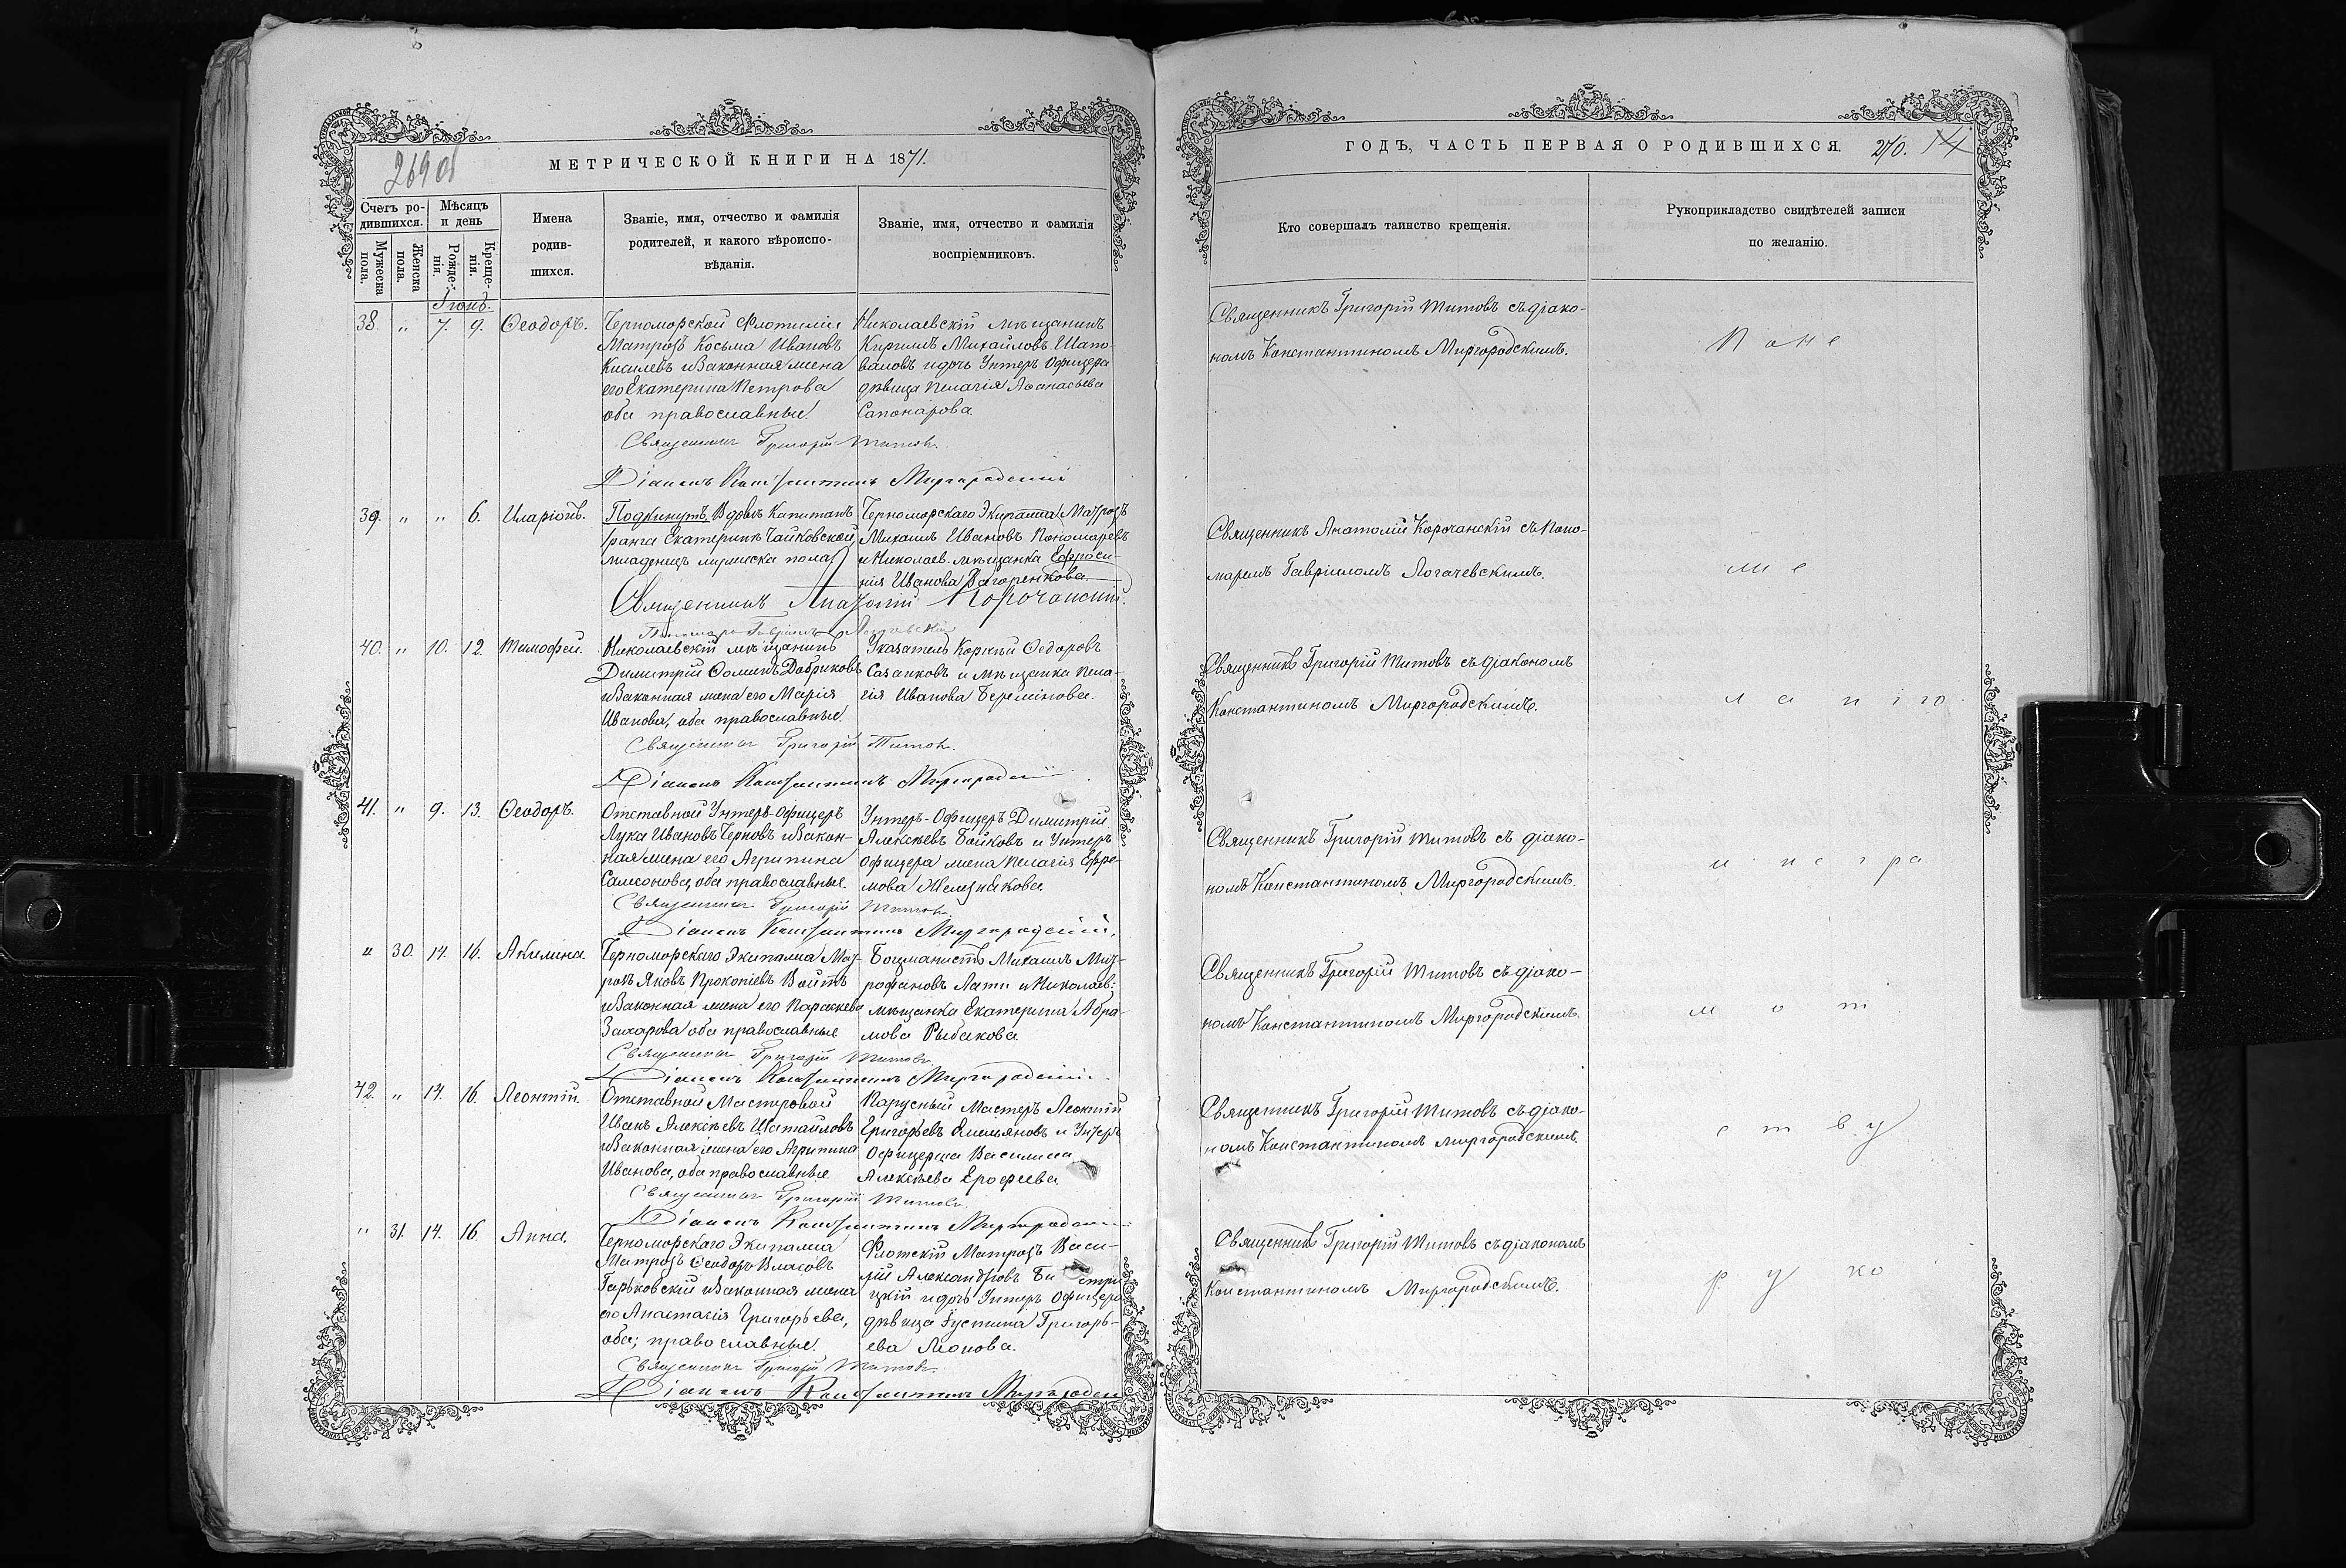 269 об
МЕТРИЧЕСКОЙ КНИГИ НА 1871.
Счетъ ро-
дившихся.
Мѣсяцъ
и день
Мужеска
пола.
Женска
пола.
Рожде-
нія.
Креще-
нія.
Имена
родив-
шихся.
Званіе, имя, отчество и фамилія
родителей, и какого вѣроиспо-
вѣданія.
Званіе, имя, отчество и фамилія
воспріемниковъ.
Іюнь.
38. " 7. 9. Ѳеодоръ.
Черноморской Флотиліи
Матрозъ Косьма Ивановъ
Киселевъ и Законная жена
его Екатерина Петрова
оба православные.
Николаевскій мѣщанинъ
Кириллъ Михайловъ Шапо-
валовъ и дочь Унтеръ Офицера
дѣвица Пелагія Аѳанасьева
Сапонарова.
Священникъ Григорій Титовъ.
Діаконъ Константинъ Миргородскій
39. " " 6. Иларіонъ.
Подкинутъ Вдовѣ Капитанъ
ранга Екатеринѣ Чайковской
младенецъ мужеска пола
Черноморскаго Экипажа Матрозъ
Михаилъ Ивановъ Пономаревъ
и Николаев. мѣщанка Ефроси-
нія Иванова Загоренкова.
Священникъ Анатолій Корочанскій.
Пономарь Гавріилъ
40. " 10. 12. Тимофей.
Николаевскій мѣщанинъ
Димитрій Ѳоминъ Добриковъ
и Законная жена его Марія
Иванова, оба православные.
Указатель Корній Ѳедоровъ
Сазанковъ и мѣщанка Пела-
гія Иванова Береминова.
Священникъ Григорій Титовъ.
Діаконъ Константинъ Миргородскій
41. " 9. 13. Ѳеодоръ.
Отставной Унтеръ-Офицеръ
Лука Ивановъ Черновъ и Закон-
ная жена его Агрипина
Самсонова, оба православные.
Унтеръ-Офицеръ Димитрій
Алексѣевъ Бойковъ и Унтеръ
офицера жена Пелагія Ефре-
мова Железнякова
Священникъ Григорій Титовъ.
Діаконъ Константинъ Миргородскій.
" 30. 14. 16. Акилина.
Черноморскаго Экипажа Мат-
розъ Яковъ Прокопіевъ Войтъ
и Законная жена его Параскева
Захарова оба православные
Боцманистъ Михаилъ Мит-
рофановъ Лати и Николаев:
мѣщанка Екатерина Абра-
мова Рыбакова
Священникъ Григорій Титовъ
Діаконъ Константинъ Миргородскій.
42. " 14. 16. Леонтій.
Отставной Мастеровой
Иванъ Алексѣевъ Шатайловъ
и Законная жена его Агрипина
Иванова, оба православные.
Парусный Мастеръ Леонтій
Григорьевъ Емельяновъ и Унтеръ
Офицерша Василиса
Алексѣева Ерофеева
Священникъ Григорій Титовъ.
Діаконъ Константинъ Миргородскій
" 31. 14. 16 Анна.
Черноморскаго Экипажа
Матрозъ Ѳеодоръ Власовъ
Гарьковскій и Законная жена
его Анастасія Григорьева,
оба; православные.
Флотскій Матрозъ Васи-
лій Александровъ
цкій и дочь Унтеръ Офицера
дѣвица Іустина Григорь-
ева Леонова.
Священникъ Григорій Титовъ.
Діаконъ Константинъ Миргородскій
ГОДЪ, ЧАСТЬ ПЕРВАЯ О РОДИВШИХСЯ. 270. 14
Кто совершалъ таинство крещенія.
Рукоприкладство свидѣтелей записи
по желанію.
Священникъ Григорій Титовъ съ діако-
номъ Константиномъ Миргородскимъ.
По не
Священникъ Анатолій Корочанскій съ Поно-
маремъ Гавріиломъ Логачевскимъ.
и м е
Священникъ Григорій Титовъ съ діакономъ
Константиномъ Миргородскимъ.
Священникъ Григорій Титовъ съ діако-
номъ Константиномъ Миргородскимъ.
Священникъ Григорій Титовъ съ діако-
номъ Константиномъ Миргородскимъ.
Священникъ Григорій Титовъ съ діако-
номъ Константиномъ Миргородскимъ.
с т в у
Священникъ Григорій Титовъ съ діакономъ
Константиномъ Миргородскимъ.
р у ко